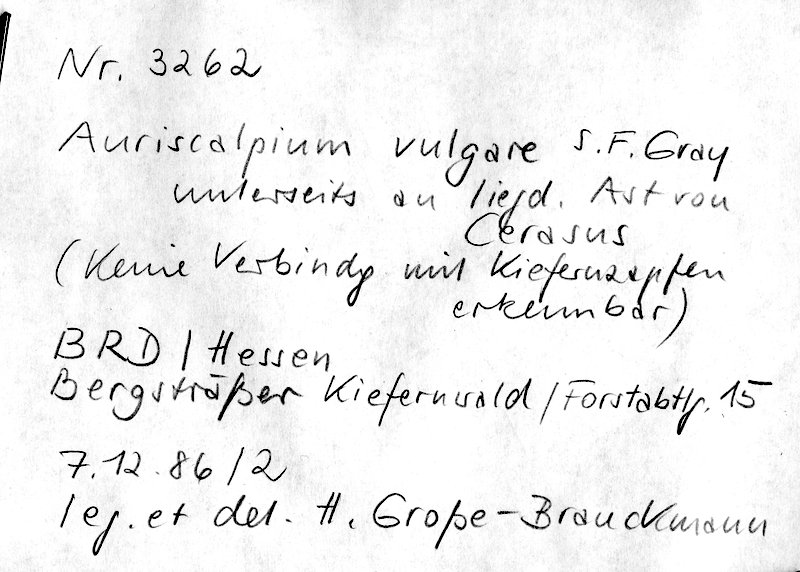 Nr. 3262
Auriscalpium vulgare S.F. Gray
unterseits an liegd. Ast von
Cerasus
(Keine Verbindg mit Kiefernzapfen
erkennbar)
BRD / Hessen
Bergsträßer Kiefernwald / Forstabtlg. 15
7.12.86/2
leg. et det. H. Große-Brauckmann